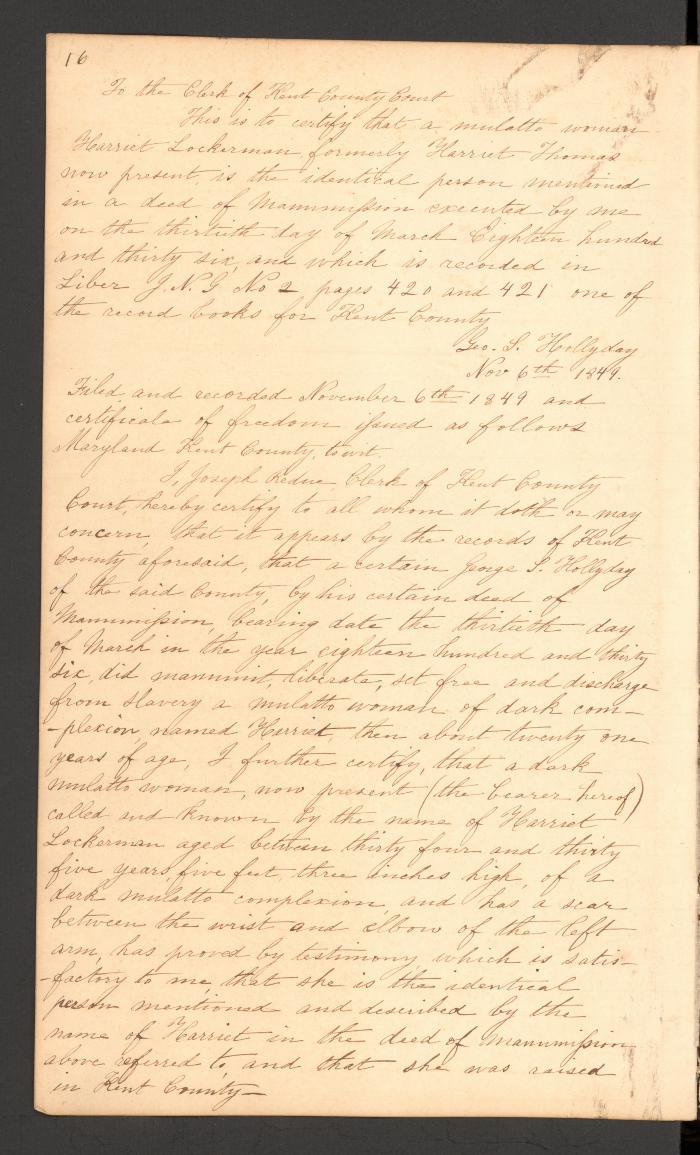 16
To the Clerk of Kent County Court
This is to certify that a mulatto woman
Harriet Lockerman, formerly Harriet Thomas
now present is the identical person mentioned
in a deed of Manumission executed by me
on the thirtieth day of March Eighteen hundred
and thirty six, and which is recorded in
Liber J.N.G No 2 pages 420 and 421 one of
the record books for Kent County
Geo. S. Hollyday
Nov 6th 1849.
Filed and recorded November 6th 1849 and
certificate of freedom issued as follows
Maryland Kent County, to wit.
I, Joseph Redue, Clerk of Kent County
Court, hereby certify to all whom it doth or may
concern, that it appears by the records of Kent
County aforesaid, that a certain George S. Hollyday
of the said County, by his certain deed of
Manumission, bearing date the thirtieth day
of March in the year eighteen hundred and thirty
six, did manumit, liberate, set free and discharge
from slavery a mulatto woman of dark com-
-plexion, named Harriet, then about twenty one
years of age, I further certify, that a dark
mulatto woman, now present (the bearer hereof)
called and known by the name of Harriet
Lockerman aged between thirty four and thirty
five years, five feet, three inches high, of a
dark mulatto complexion, and has a scar
between the wrist and elbow of the left
arm, has proved by testimony, which is satis-
-factory to me, that she is the identical
person mentioned and described by the
name of Harriet in the deed of manumission
above referred to, and that she was raised
in Kent County—